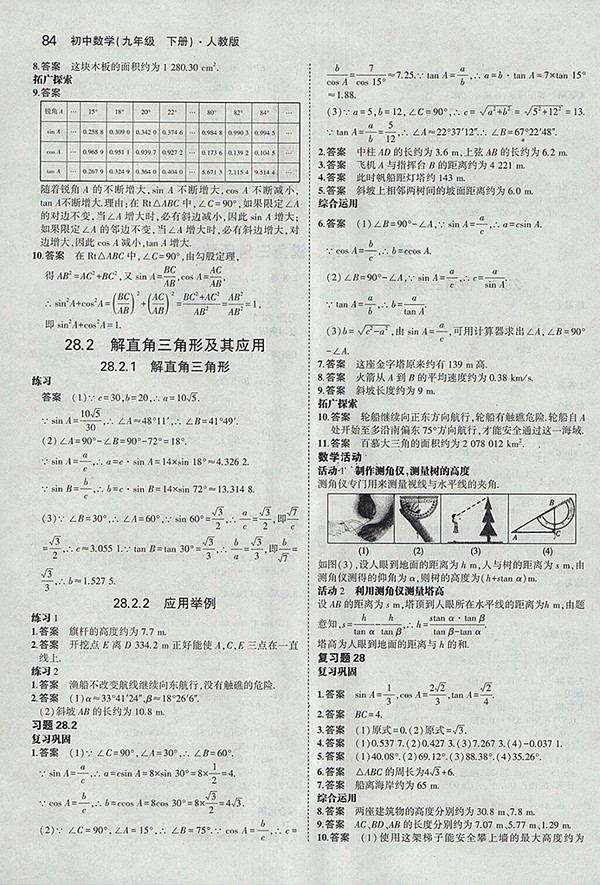 84 初中数学(九年级 下册)·人教版
8.答案 这块木板的面积约为 1 280.30 cm².
拓广探索
9.答案
锐角 A ⋯ 15° 18° 20° 22° ⋯ 80° 82° 84° ⋯
sin A ⋯ 0.258 8 0.309 0 0.342 0 0.374 6 ⋯ 0.984 8 0.990 3 0.994 5 ⋯
cos A ⋯ 0.965 9 0.951 1 0.939 7 0.927 2 ⋯ 0.173 6 0.139 2 0.104 5 ⋯
tan A ⋯ 0.267 9 0.324 9 0.364 0 0.404 0 ⋯ 5.671 3 7.115 4 9.514 4 ⋯
随着锐角 A 的不断增大,sin A 不断增大,cos A 不断减小,
tan A不断增大.理由:在 Rt△ABC 中,∠C=90°,如果限定∠A
的对边不变,当∠A 增大时,必有斜边减小,因此 sin A 增大;
如果限定∠A 的邻边不变,当∠A 增大时,必有斜边增大,对
边增大,因此 cos A 减小,tan A 增大.
10.答案 在 Rt△ABC 中,∠C=90°,由勾股定理,
得 AB²=AC²+BC²,又 sin A=BC/AB,cos A=AC/AB,
∴sin²A+cos²A=(BC/AB)²+(AC/AB)²=(BC²+AC²)/AB²=AB²/AB²=1,
即 sin²A+cos²A=1.
28.2 解直角三角形及其应用
28.2.1 解直角三角形
练习
答案 (1)∵c=30,b=20,∴a=10√5.
∵sin A=10√5/30,∴∠A≈48°11′,∴∠B=41°49′.
(2)∠A=90°-∠B=90°-72°=18°.
∵sin A=a/c,∴a=c·sin A=14×sin 18°≈4.326 2.
∵sin B=b/c,∴b=c·sin B=14×sin 72°≈13.314 8.
(3)∵∠B=30°,∴∠A=60°,∵sin 60°=√3/2,∴a/c=√3/2,即√7/c
=√3/2,∴c≈3.055 1.∵tan B=tan 30°=√3/3,∴b/a=√3/3,即b/√7=
√3/3,∴b≈1.527 5.
28.2.2 应用举例
练习 1
1.答案 旗杆的高度约为 7.7 m.
2.答案 开挖点 E 离 D 334.2 m 正好能使 A,C,E 三点在一直
线上.
练习 2
1.答案 渔船不改变航线继续向东航行,没有触礁的危险.
2.答案 (1)α≈33°41′24″,β≈18°26′6″.
(2)斜坡 AB 的长约为 10.8 m.
习题 28.2
复习巩固
1.答案 (1)∵∠C=90°,∠A=30°,∴∠B=60°.
∵sin A=a/c,∴a=csin A=8×sin 30°=8×1/2=4.
∵cos A=b/c,∴b=ccos A=8cos 30°=8×√3/2=4√3.
(2)∵∠C=90°,∠A=15°,∴∠B=75°.∵cos A=b/c,∴c=
b/cos A=7/cos 15°≈7.25.∵tan A=a/b,∴a=b·tan A=7×tan 15°
≈1.88.
(3)∵a=5,b=12,∠C=90°,∴c=√(a²+b²)=√(5²+12²)=13.
∵tan A=a/b=5/12,∴∠A≈22°37′12″.∴∠B=67°22′48″.
2.答案 中柱 AD 的长约为 3.6 m,上弦 AB 的长约为 6.2 m.
3.答案 飞机 A 与指挥台 B 的距离约为 4 221 m.
4.答案 此时帆船距灯塔约 143 m.
5.答案 斜坡上相邻两树间的坡面距离约为 6.0 m.
综合运用
6.答案 (1)∠B=90°-∠A,∵sin A=a/c,∴a=csin A.
∵cos A=b/c,∴b=ccos A.
(2)∠B=90°-∠A,∵sin A=a/c,∴c=a/sin A.
∵tan A=a/b,∴b=a/tan A.
(3)b=√(c²-a²),由 sin A=a/c,可用计算器求出∠A,∠B=90°
-∠A.
7.答案 这座金字塔原来约有 139 m 高.
8.答案 火箭从 A 到 B 的平均速度约为 0.38 km/s.
9.答案 斜坡长度约为 9 m.
拓广探索
10.答案 轮船继续向正东方向航行,轮船有触礁危险.轮船自 A
处开始至多沿南偏东 75°方向航行,才能安全通过这一海域.
11.答案 百慕大三角的面积约为 2 078 012 km².
数学活动
活动 1 制作测角仪,测量树的高度
测角仪专门用来测量视线与水平线的夹角.
(1) (2) (3) (4)
如图(3),设人眼到地面的距离为 h m,人与树的距离为 s m,由
测角仪测得的仰角为 α,则树的高度为(h+stan α)m.
活动 2 利用测角仪测量塔高
设 AB 的距离为 s m,塔顶到人眼所在水平线的距离为h m,由题
意知,s=h/tan α-h/tan β,∴h=stan α·tan β/(tan β-tan α).
塔高为人眼到地面的距离与 h 的和.
复习题 28
复习巩固
1.答案 sin A=1/3,cos A=2√2/3,tan A=√2/4.
2.答案 BC=4.
3.答案 (1)原式=0.(2)原式=√3.
4.答案 (1)0.537 7.(2)0.427 3.(3)7.267 3.(4)-0.037 1.
5.答案 (1)40.08°.(2)69.12°.(3)88.38°.(4)35.26°.
6.答案 △ABC 的周长为4√3+6.
7.答案 船离海岸约为 65 m.
综合运用
8.答案 两座建筑物的高度分别约为 30.8 m、7.8 m.
9.答案 AC、BD、AB 的长度分别约为 7.07 m、5.77 m、1.29 m.
10.答案 (1)使用这架梯子能安全攀上墙的最大高度约为